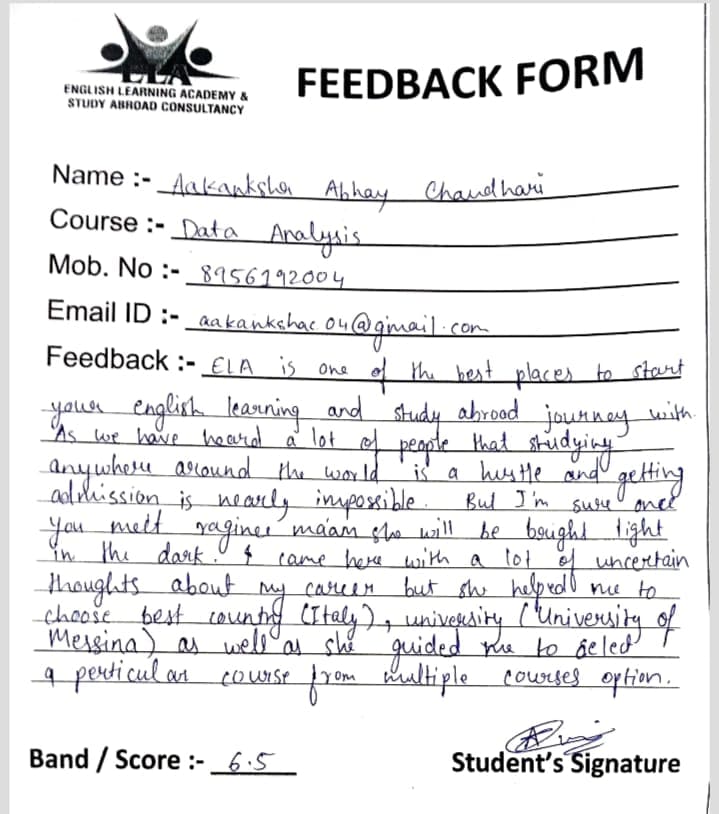 ELA
ENGLISH LEARNING ACADEMY &
STUDY ABROAD CONSULTANCY
FEEDBACK FORM
Name :- Aakanksha Abhay Chaudhari
Course :- Data Analysis
Mob. No :- 8956192004
Email ID :- aakankshac04@gmail.com
Feedback :- ELA is one of the best places to start
your english learning and study abroad journey with.
As we have heard a lot of people that studying
anywhere around the world is a hustle and getting
admission is nearly impossible. But I'm sure once
you mett raginee ma'am she will be bought light
in the dark. I came here with a lot of uncertain
thoughts about my career but she helped me to
choose best country (Italy), university (University of
Messina) as well as she guided me to select
a perticular course from multiple courses option.
Band / Score :- 6.5
Student's Signature